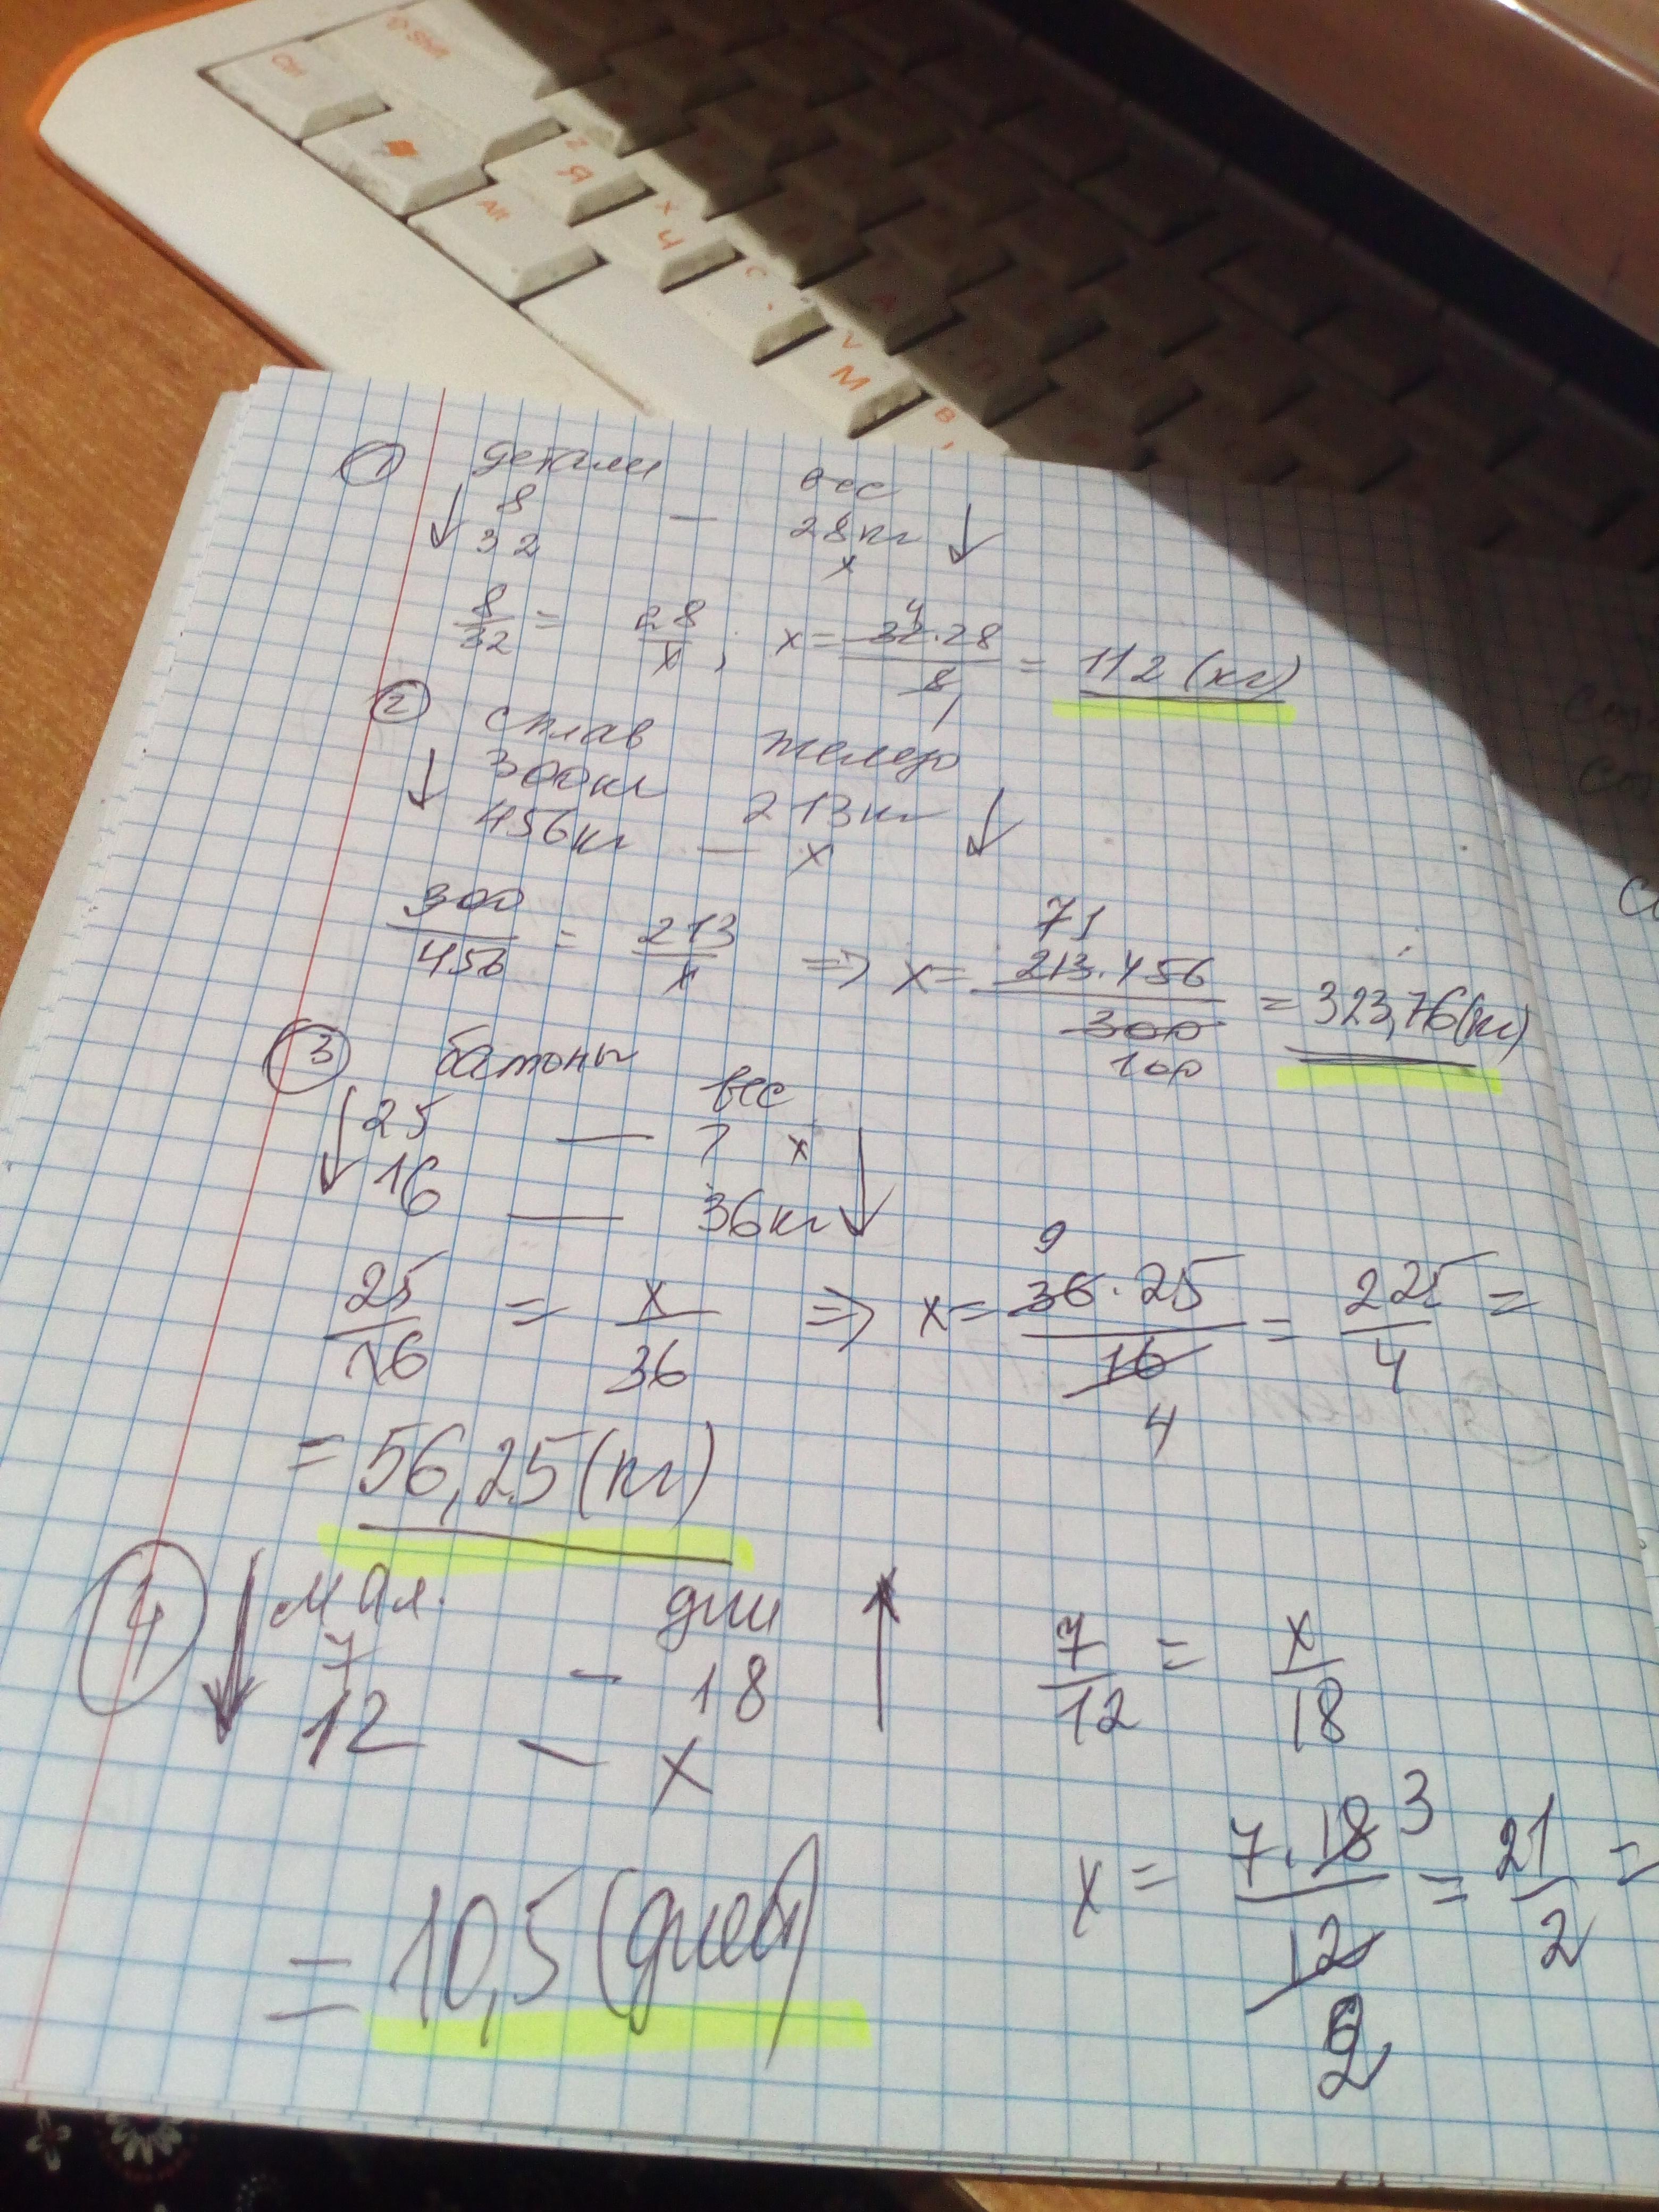 Shift
Ctrl
Z Я
Alt
X Ч
C С
V М
B
А
П
① детали вес
8 — 28кг
32 x
8/32 = 28/x ; x = 32·28/8 = 112 (кг)
4
1
② сплав железо
300кг 213кг
456кг — x
300/456 = 213/x => x = 213·456/300 = 323,76(кг)
71
100
③ батоны вес
25 — ? x
16 — 36кг
25/16 = x/36 => x = 36·25/16 = 225/4 =
9
4
= 56,25 (кг)
④ мал. дни
7 — 18
12 — x
7/12 = x/18
x = 7·18/12 = 21/2 =
3
2
= 10,5 (дней)